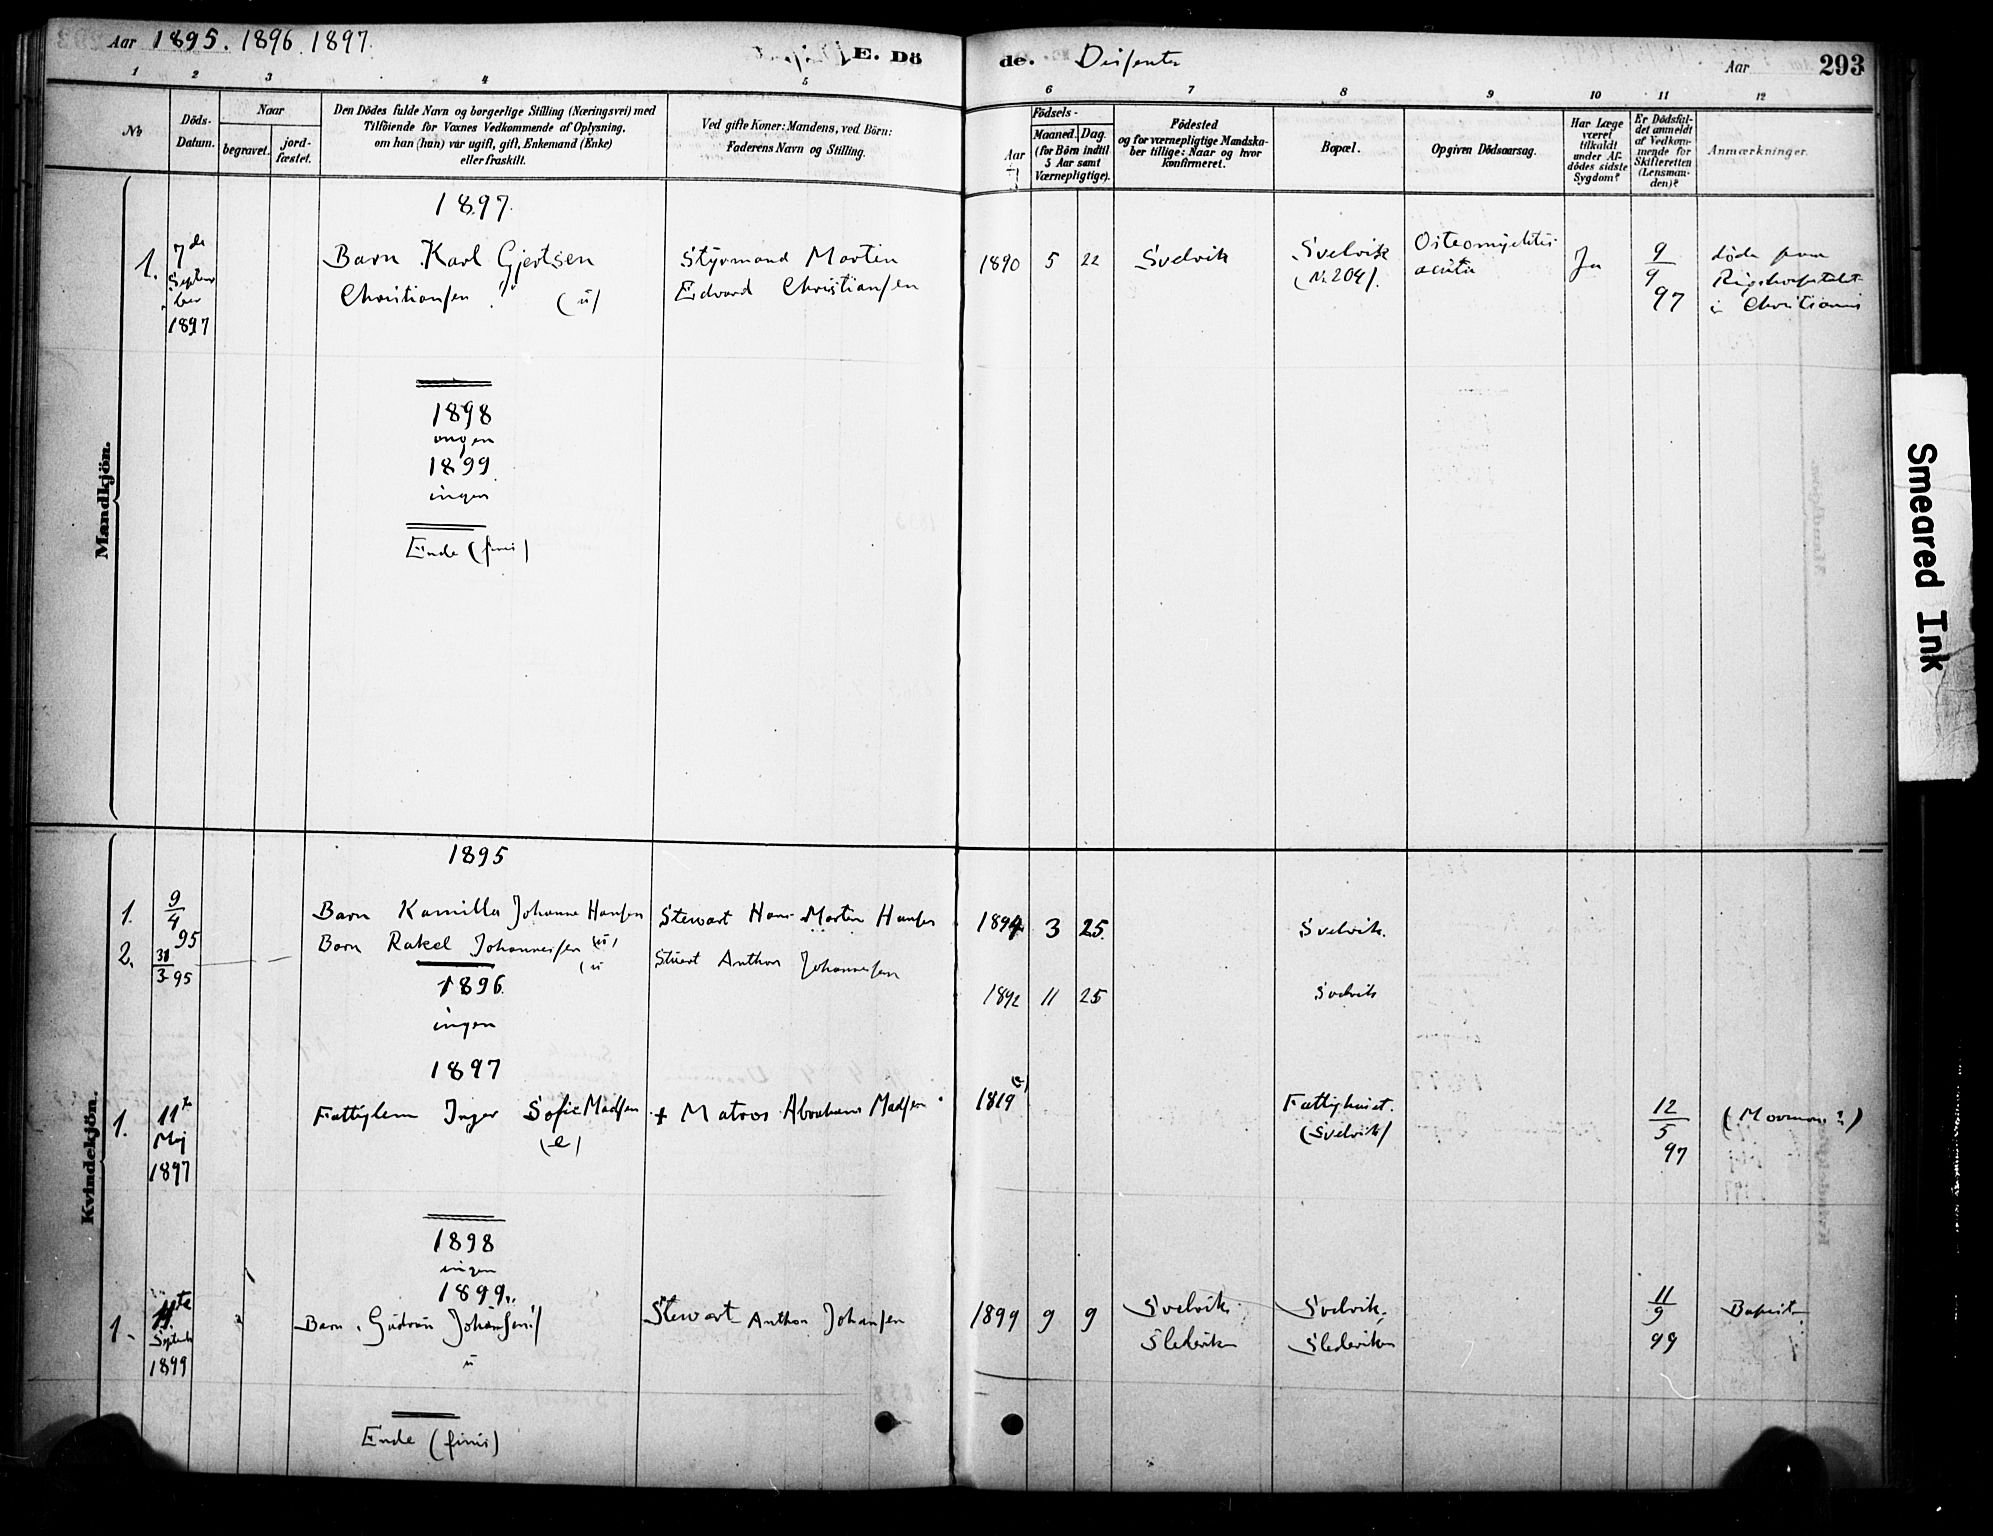 Aar 1895. 1896 1897.
E. Dö
de. Disenter
Aar
293
1 2 3 4 5 6 7 8 9 10 11 12
No
Döds-
Datum.
Naar
begravet.
jord-
fæstet.
Den Dödes fulde Navn og borgerlige Stilling (Næringsvei) med
Tilföiende for Voxnes Vedkommende af Oplysning,
om han (hun) var ugift, gift, Enkemand (Enke)
eller fraskilt.
Ved gifte Koner: Mandens, ved Börn:
Faderens Navn og Stilling.
Födsels-
Aar
Maaned.
Dag.
(for Börn indtil
5 Aar samt
Værnepligtige).
Födested
og for værnepligtige Mandska-
ber tillige: Naar og hvor
konfirmeret.
Bopæl.
Opgiven Dödsaarsag.
Har Læge
været
tilkaldt
under Af-
dödes sidste
Sygdom?
Er Dödsfal-
det anmeldt
af Vedkom-
mende for
Skifteretten
(Lensman-
den)?
Anmærkninger.
Mandkjön.
1897.
1.
7de
Septem
ber
1897
Barn Karl Gjertsen
Christiansen (u)
Styrmand Martin
Edvard Christiansen
1890 5 22
Svelvik
Svelvik
(N. 204).
Osteomyelitis
acuta
Ja
9
9
97
døde paa
Rigshospitalet
i Christiania
1898
ingen
1899
ingen
Ende (finis)
Smeared Ink
Kvindekjön.
1895
1. 9/4 95 Barn Kamilla Johanne Hansen (u) Stewart Hans Martin Hansen 1894 3 25. Svelvik.
2. 31/3 95 Barn Rakel Johannesen (u Stuert Anthon Johannesen 1892 11 25 Svelvik
1896
ingen
1897
1.
11te
Maj
1897
Fattiglem Inger Sofie Madsen
(e)
+ Matros Abraham Madsen
1819 (e)
Fattighuset.
(Svelvik)
12
5
97
(Mormon?)
1898
ingen
1899
1.
11te
Septemb
1899
Barn Gudrun Johansen
u
Stewart Anthon Johansen
1899 9 9
Svelvik
Sledeviken
Svelvik,
Sledeviken
11
9
99
Baptist
Ende (finis)